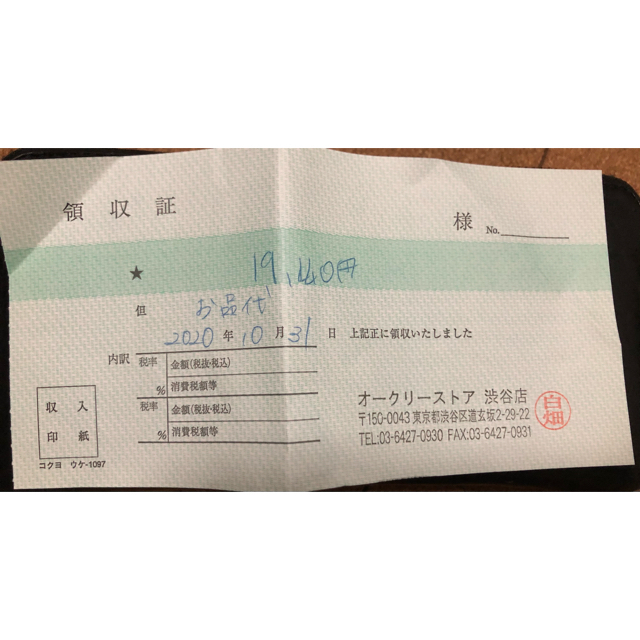 領収証
様 No.
★ 19,140円
但 お品代
2020年10月31日 上記正に領収いたしました
内訳 税率 金額(税抜・税込)
% 消費税額等
税率 金額(税抜・税込)
% 消費税額等
収入
印紙
コクヨ ウケ-1097
オークリーストア 渋谷店
〒150-0043 東京都渋谷区道玄坂2-29-22
TEL:03-6427-0930 FAX:03-6427-0931
白畑